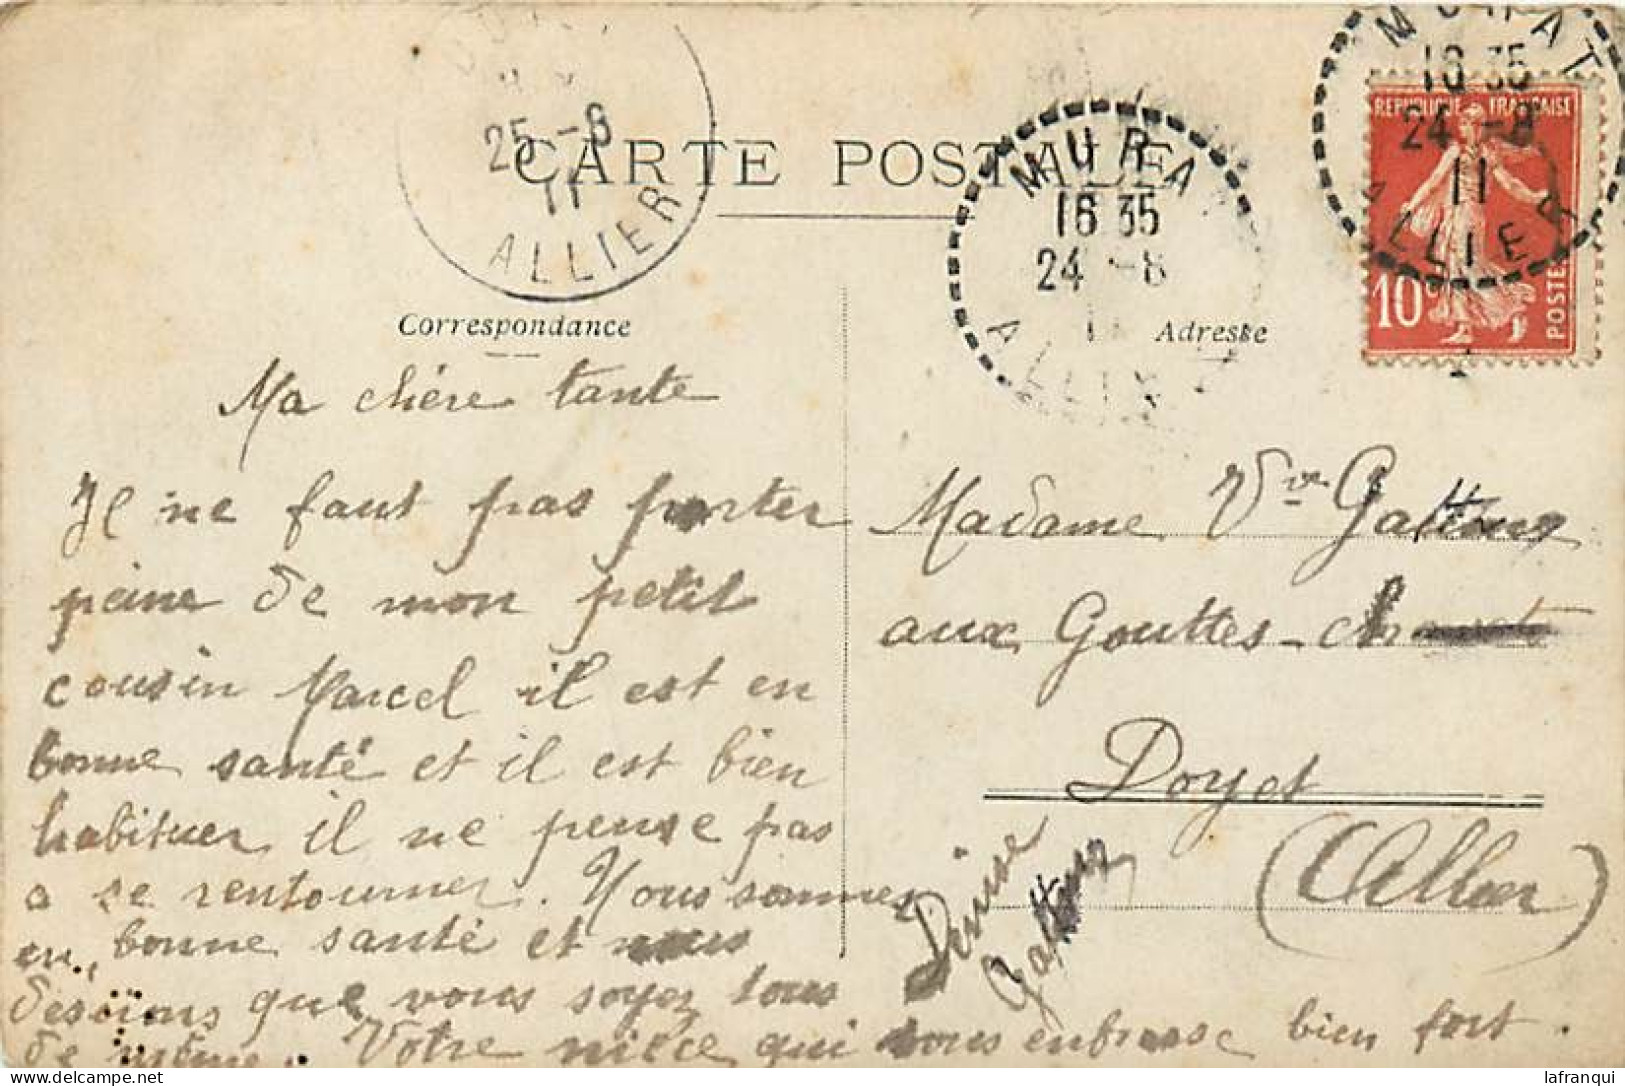 CARTE POSTALE
25 -8
11
ALLIER
MURA
16 35
24 -8
ALLIE
MURAT
16 35
24 -8
11
ALLIER
REPUBLIQUE FRANÇAISE
10c
POSTES
Correspondance
Adresse
Ma chére tante
Il ne faut pas porter
peine de mon petit
cousin Marcel il est en
bonne santé et il est bien
habituer il ne pense pas
a se rentourner. Nous sommes
en bonne santé et nous
desirons que vous soyez tous
de même. Votre nièce qui vous embrasse bien fort.
Denise
Madame Vve
aux Gouttes-
Doyet
(Allier)
lafranqui